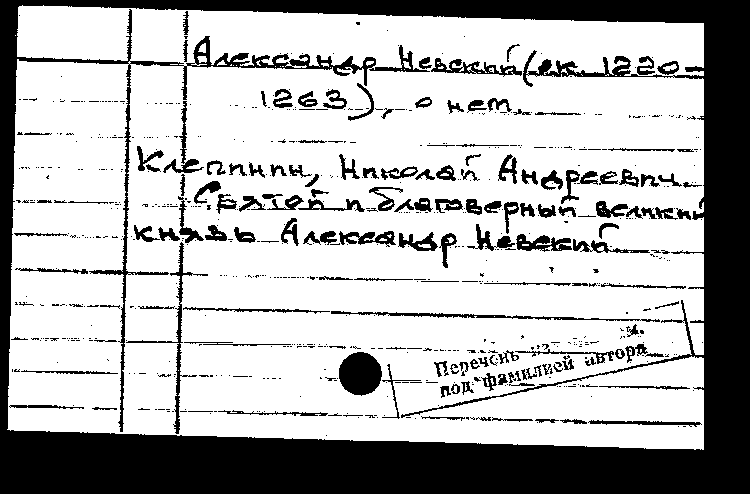 Александр Невский (ок. 1220–
1263), о нем.
Клепинин, Николай Андреевич.
Святой и благоверный великий
князь Александр Невский.
Перечень из м.
под фамилией автора